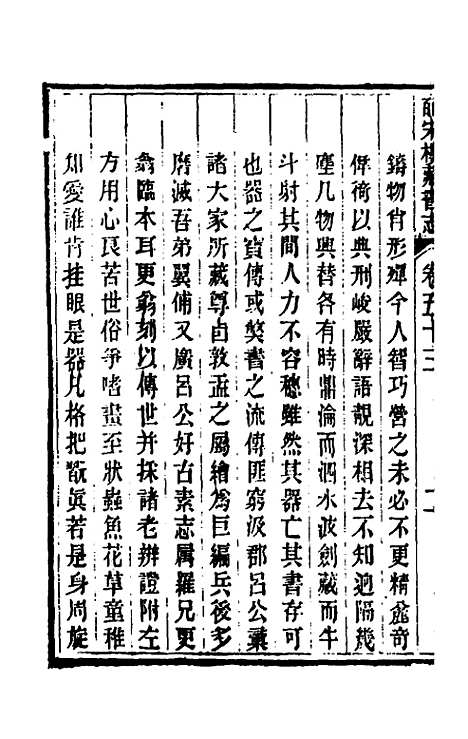 皕宋樓藏書志 卷五十三
鑄物肖形殫今人智巧營之未必不更精鑫奇
倳倚以典刑峻嚴辭語靚深相去不知逈隔幾
塵几物興替各有時鼎淪而泗水波劍藏而牛
斗射其間人力不容穗雖然其器亡其書存可
也器之寳傳或契書之流傳匪窮汲郡呂公彚
諸大家所藏尊卣敦盂之屬繪爲巨編兵後多
磨滅吾弟翼俌又廣呂公好古素志属羅兄更
翁臨本耳更翁刻以傳世并採諸老辨證附左
方用心良苦世俗爭嗜畫至狀蟲魚花草童稚
知愛誰肯挂眼是器凡格把翫眞若是身周旋